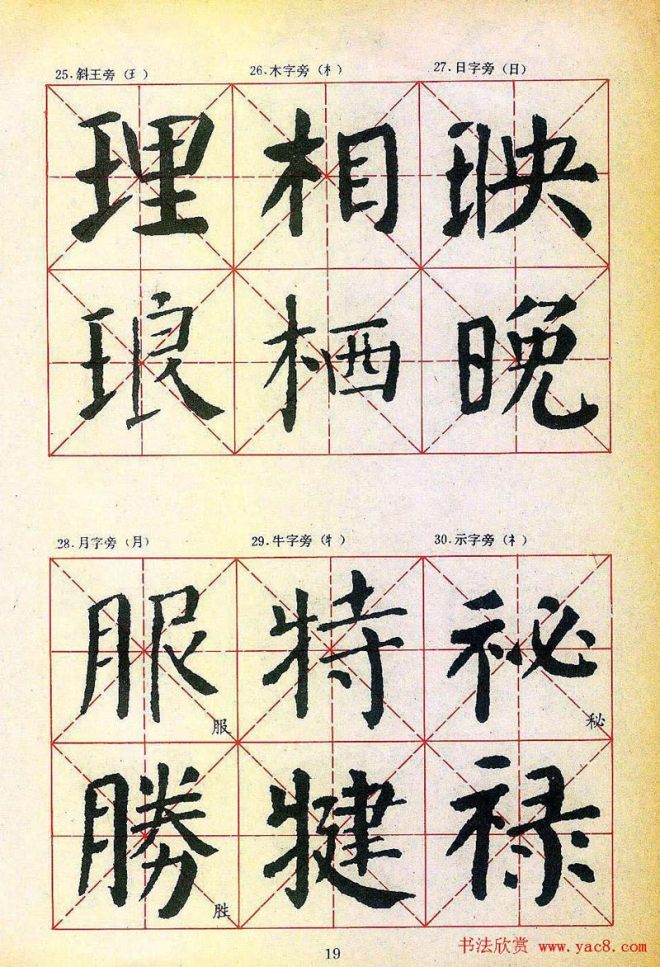 25.斜王旁(王) 26.木字旁(木) 27.日字旁(日)
理 相 映
琅 栖 晚
28.月字旁(月) 29.牛字旁(牜) 30.示字旁(礻)
服 特 祕
服 秘
勝 犍 禄
胜
19
书法欣赏 www.yac8.com